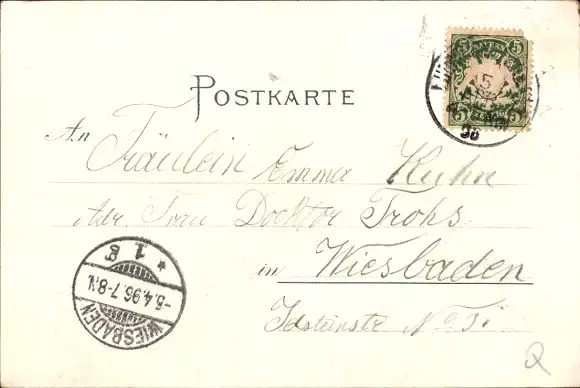 POSTKARTE
5 BAYERN 5
5
5 5
96
An
Fräulein Emma Kuhn
Adr. Frau Docktor Frohs
in Wiesbaden
Idsteinstr No
* 1 g
-5.4.96.7-8.N.
WIESBADEN